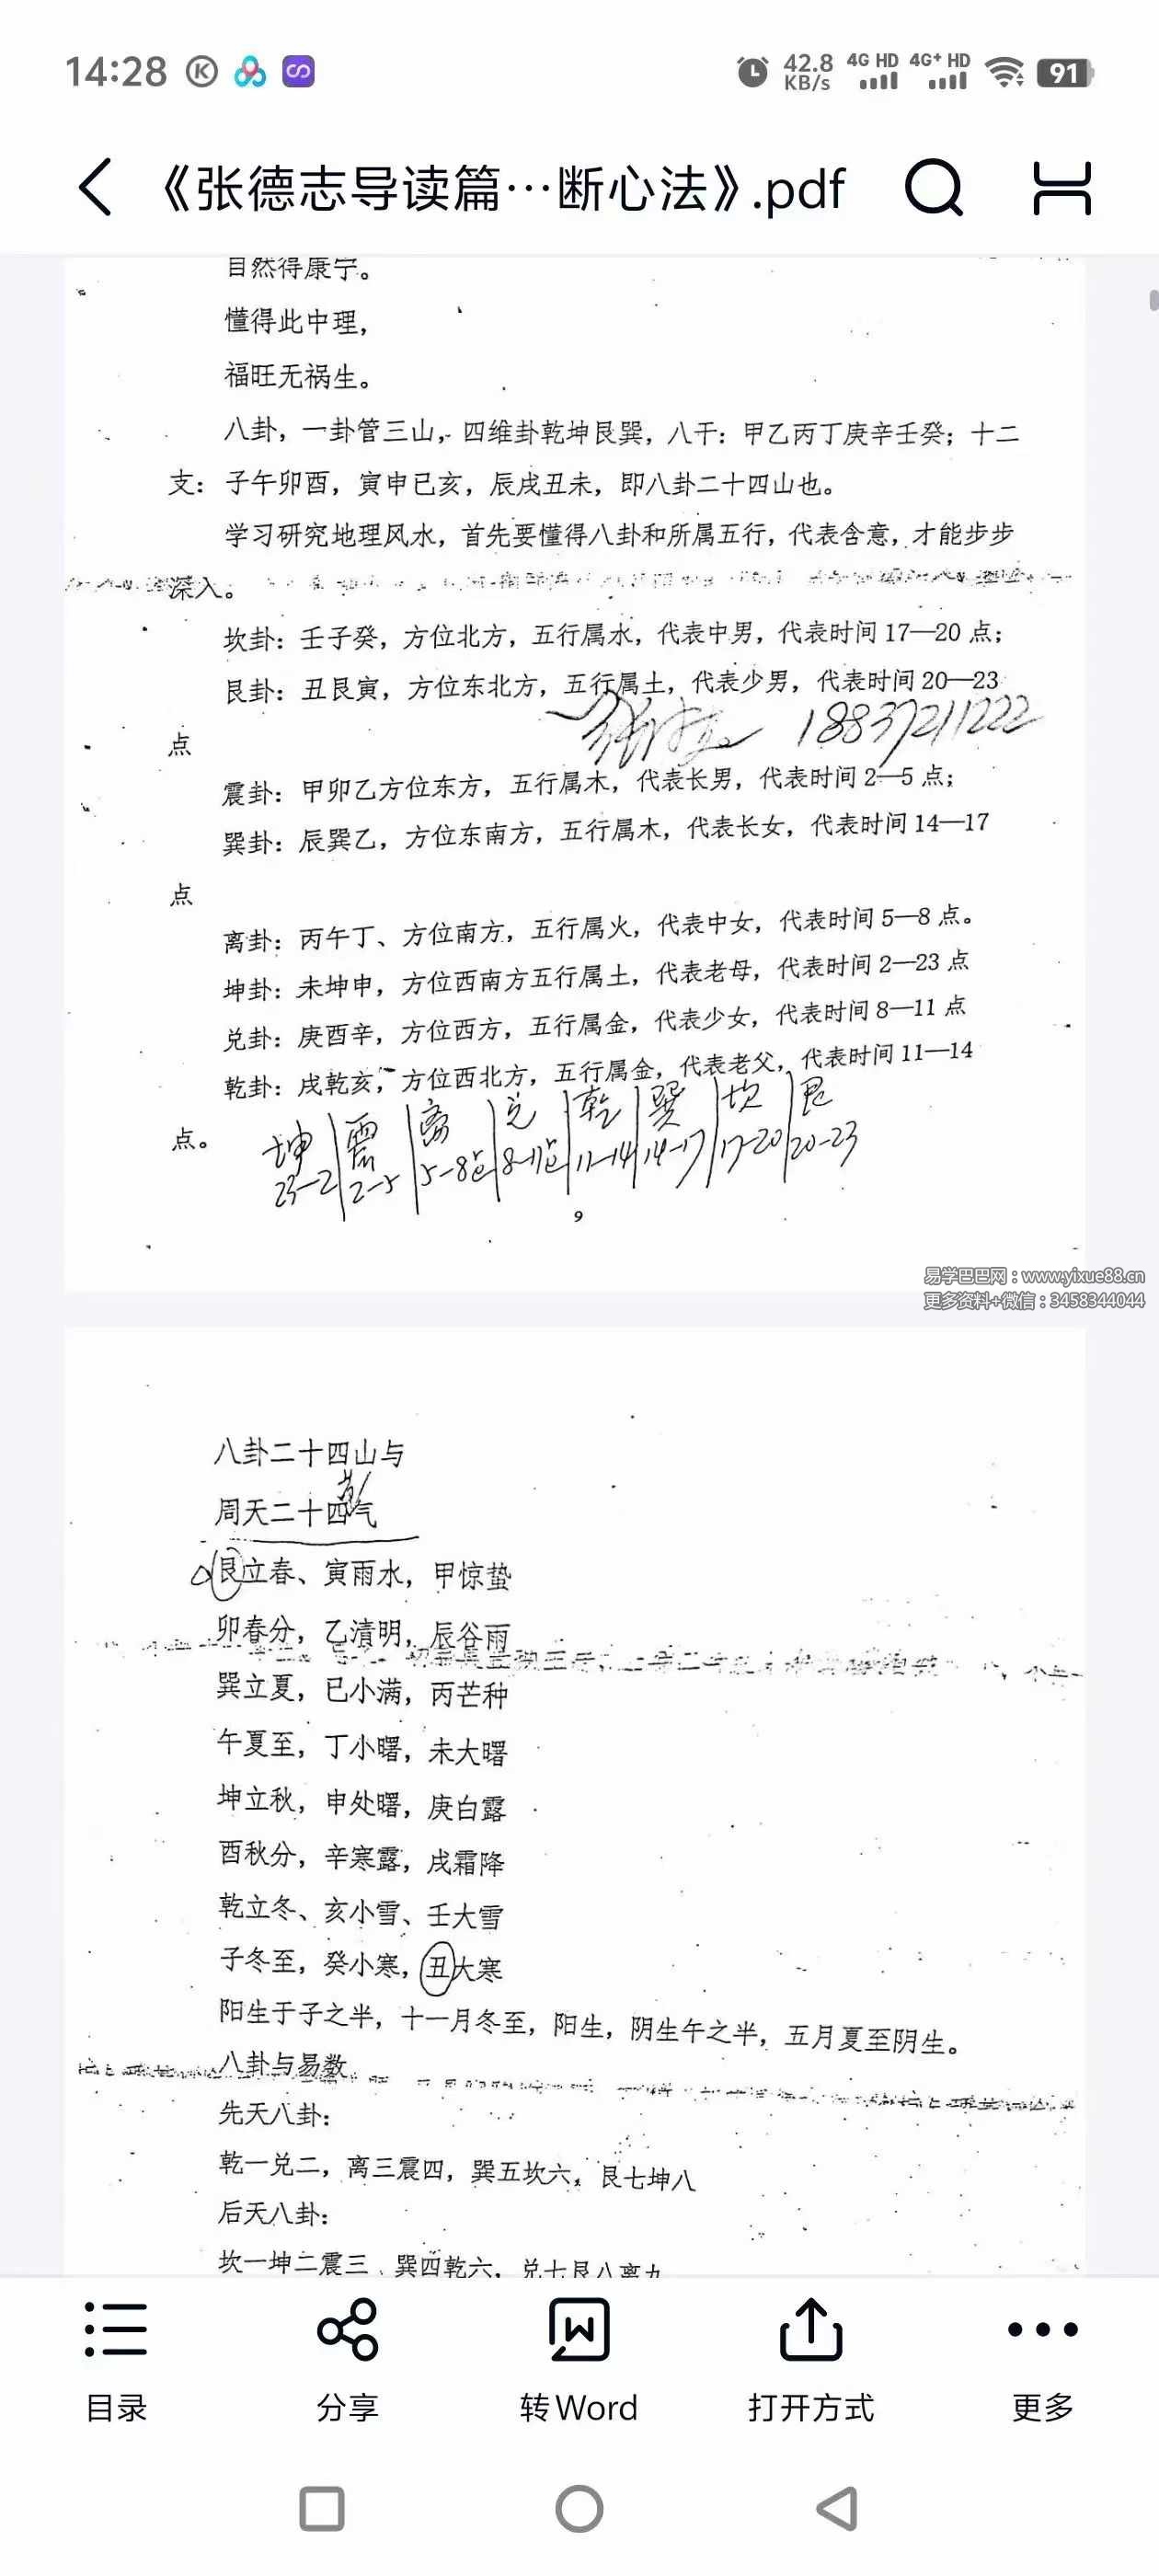 14:28
42.8 KB/s 4G HD 4G+ HD 91
《张德志导读篇…断心法》.pdf
自然得康宁。
懂得此中理，
福旺无祸生。
八卦，一卦管三山，四维卦乾坤艮巽，八干：甲乙丙丁庚辛壬癸；十二
支：子午卯酉，寅申已亥，辰戌丑未，即八卦二十四山也。
学习研究地理风水，首先要懂得八卦和所属五行，代表含意，才能步步
深入。
坎卦：壬子癸，方位北方，五行属水，代表中男，代表时间17—20点；
艮卦：丑艮寅，方位东北方，五行属土，代表少男，代表时间20—23
18837211222
点
震卦：甲卯乙方位东方，五行属木，代表长男，代表时间2—5点；
巽卦：辰巽乙，方位东南方，五行属木，代表长女，代表时间14—17
点
离卦：丙午丁、方位南方，五行属火，代表中女，代表时间5—8点。
坤卦：未坤申，方位西南方五行属土，代表老母，代表时间2—23点
兑卦：庚酉辛，方位西方，五行属金，代表少女，代表时间8—11点
乾卦：戌乾亥，方位西北方，五行属金，代表老父，代表时间11—14
点。
坤 震 离 兑 乾 巽 坎 艮
23-2 2-5 5-8点 8-11点 11-14 14-17 17-20 20-23
9
易学巴巴网：www.yixue88.cn
更多资料+微信：3458344044
八卦二十四山与
周天二十四气
艮立春、寅雨水，甲惊蛰
卯春分，乙清明，辰谷雨
巽立夏，已小满，丙芒种
午夏至，丁小曙，未大曙
坤立秋，申处曙，庚白露
酉秋分，辛寒露，戌霜降
乾立冬、亥小雪、壬大雪
子冬至，癸小寒，丑大寒
阳生于子之半，十一月冬至，阳生，阴生午之半，五月夏至阴生。
八卦与易数
先天八卦：
乾一兑二，离三震四，巽五坎六，艮七坤八
后天八卦：
坎一坤二震三、巽四乾六，兑七艮八离九
目录
分享
转Word
打开方式
更多